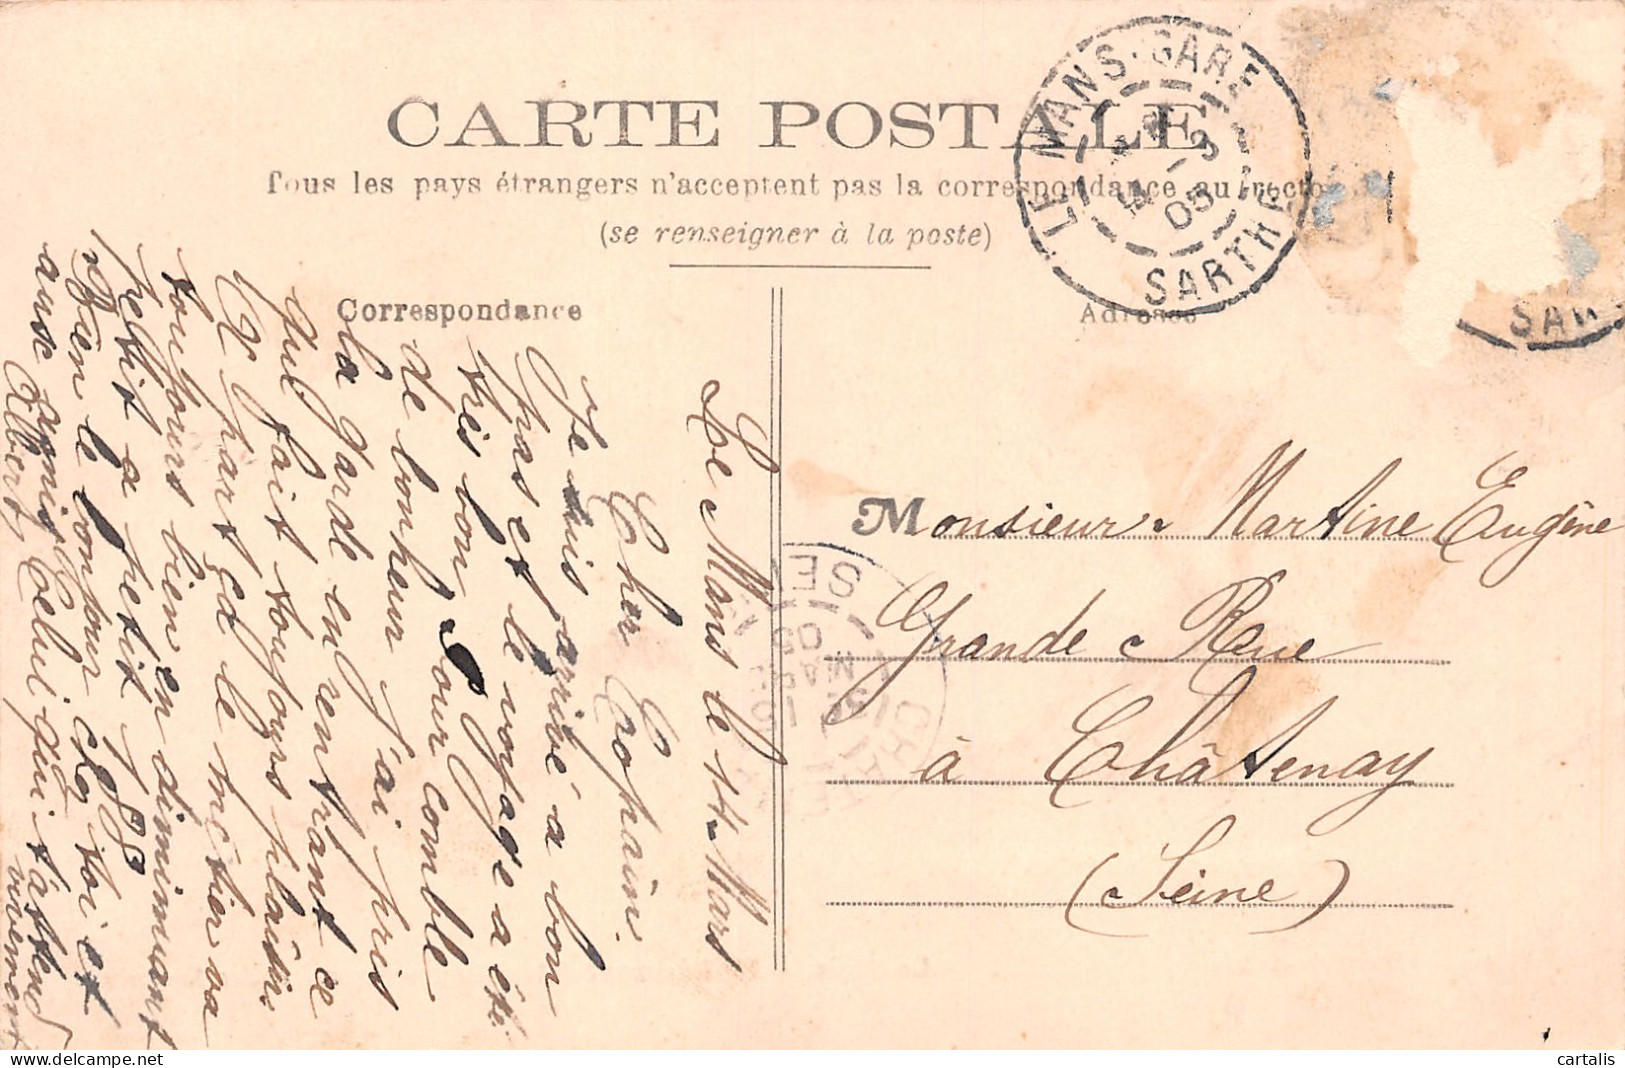 CARTE POSTALE
Tous les pays étrangers n'acceptent pas la correspondance au recto
(se renseigner à la poste)
Correspondance
Adresse
LE MANS-GARE
14 - 3
05
SARTHE
SAR
Le Mans le 14 Mars
Cher Copain.
Je suis arrivé à bon
pas et le voyage a été
très bon, pour comble
de bonheur j'ai pris
la garde en rentrant ce
qui fait toujours plaisir
à part ça le métier va
toujours bien en diminuant
petit a petit 188
Bien le bonjour chez toi et
aux amis Celui qui t'attend
Albert
vivement
Monsieur Martine Eugène
Grande Rue
à Châtenay
(Seine)
SEINE
05
MARS
15
cartalis